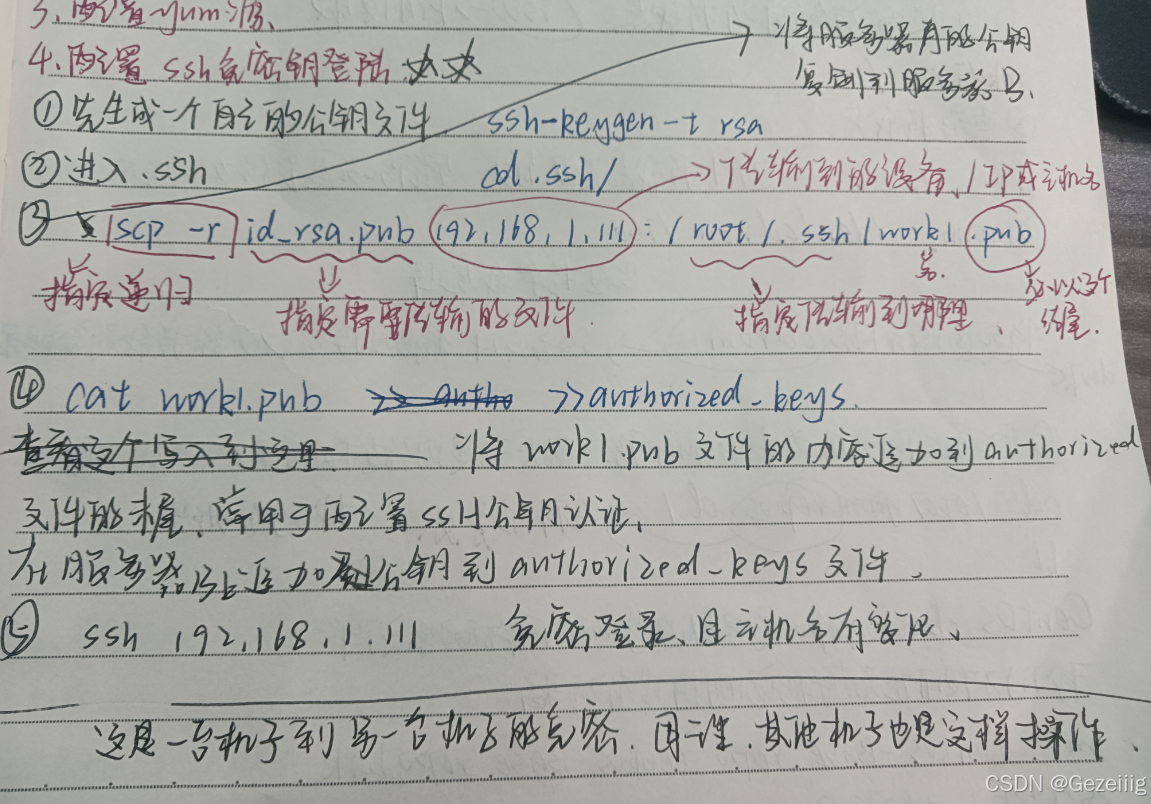 3、配置yum源、
4、配置 ssh免密钥登陆 ☆☆
→ 将服务器A的公钥
复制到服务器B、
①先生成一个自己的公钥文件 ssh-keygen-t rsa
②进入.ssh cd .ssh/
→传输到的设备、/IP或主机名
③ scp -r id_rsa.pub 192.168.1.111:/root/.ssh/work1.pub
指定递归
指定需要传输的文件.
指定传输到哪里、
名.
必以这个
结尾.
④ cat work1.pub >> autho >>authorized_keys.
查看这个写入到这里 将work1.pub文件的内容追加到authorized
文件的末尾、常用于配置SSH公钥认证、
在服务器B上追加公钥到authorized_keys文件、
⑤ ssh 192.168.1.111 免密登录、且主机名有变化、
这是一台机子到另一台机子的免密.同理.其他机子也是这样操作、
CSDN @Gezeiiig